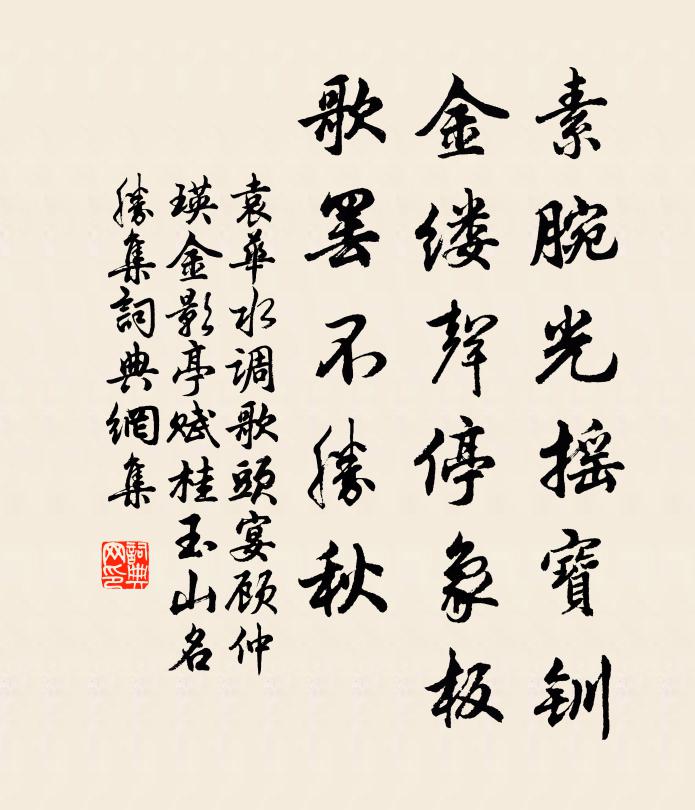 素腕光摇寶釧
金缕聲停象板
歌罢不勝秋
袁華水调歌頭宴顾仲
瑛金影亭赋桂玉山名
勝集詞典網集
詞典
网印